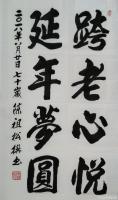 跨老心悦
延年夢圓
二〇一八年八月廿日七十歲祖松撰書